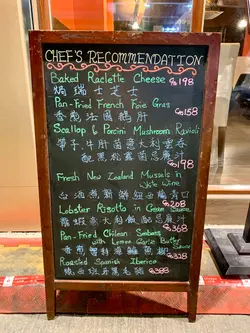 CHEF'S RECOMMENDATION
Baked Raclette Cheese $198
焗瑞士芝士
Pan-Fried French Foie Gras $158
香煎法國鵝肝
Scallop & Porcini Mushroom Ravioli
帶子牛肝菌意大利雲吞
配黑松露菌忌廉汁 $198
Fresh New Zealand Mussels in
White Wine
白酒煮新鮮紐西蘭青口 $208
Lobster Risotto in Cream Sauce
龍蝦意大利飯配忌廉汁 $368
Pan-Fried Chilean Seabass
with Lemon Garlic Butter
Sauce
香煎智利海鱸魚柳 $328
Roasted Spanish Iberico
燒西班牙黑 $388